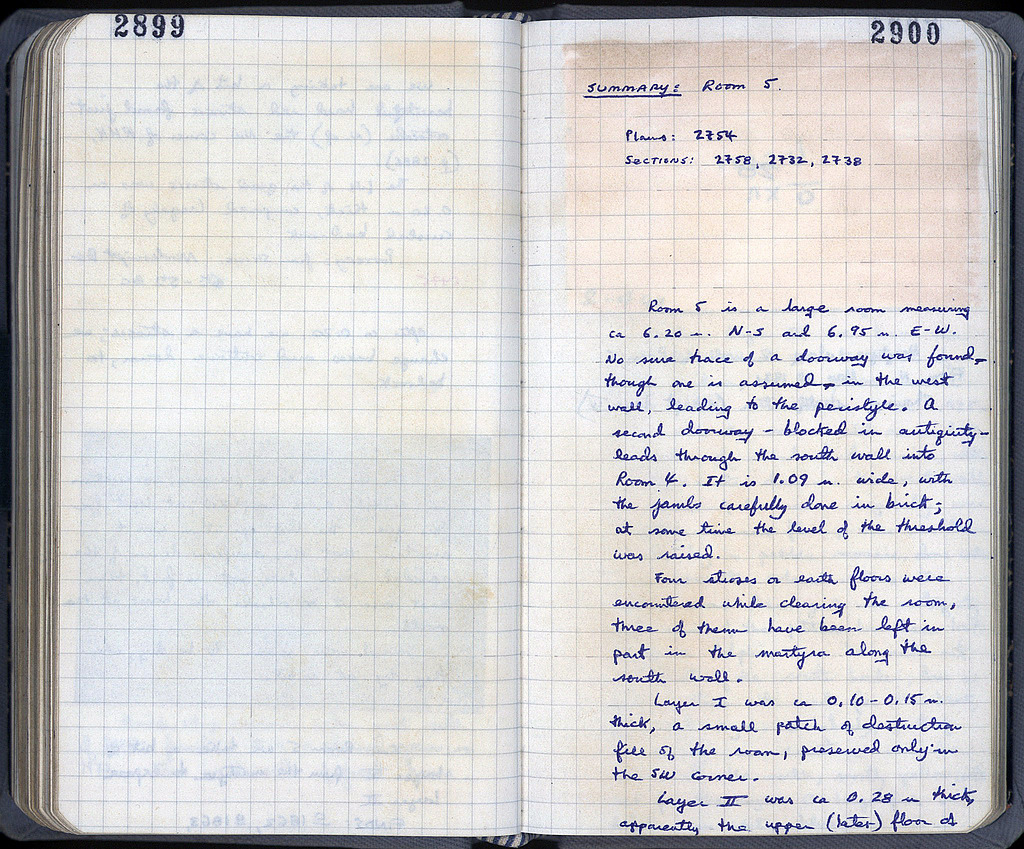 2899
2900
SUMMARY: Room 5.
Plans: 2754
SECTIONS: 2758, 2732, 2738
Room 5 is a large room measuring
ca 6.20 m. N-S and 6.95 m. E-W.
No sure trace of a doorway was found,
though one is assumed, in the west
wall, leading to the peristyle. A
second doorway - blocked in antiquity -
leads through the south wall into
Room 4. It is 1.09 m. wide, with
the jambs carefully done in brick;
at some time the level of the threshold
was raised.
Four stroses or earth floors were
encountered while clearing the room,
three of them have been left in
part in the martyra along the
south wall.
Layer I was ca 0.10 - 0.15 m.
thick, a small patch of destruction
fill of the room, preserved only in
the SW corner.
Layer II was ca 0.28 m thick,
apparently the upper (later) floor of